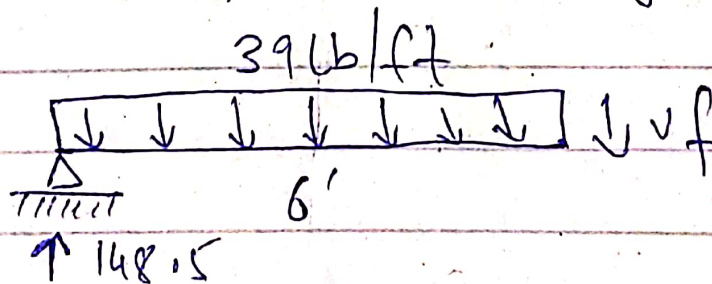 39 lb/ft
↓ vf
6'
↑ 148.5